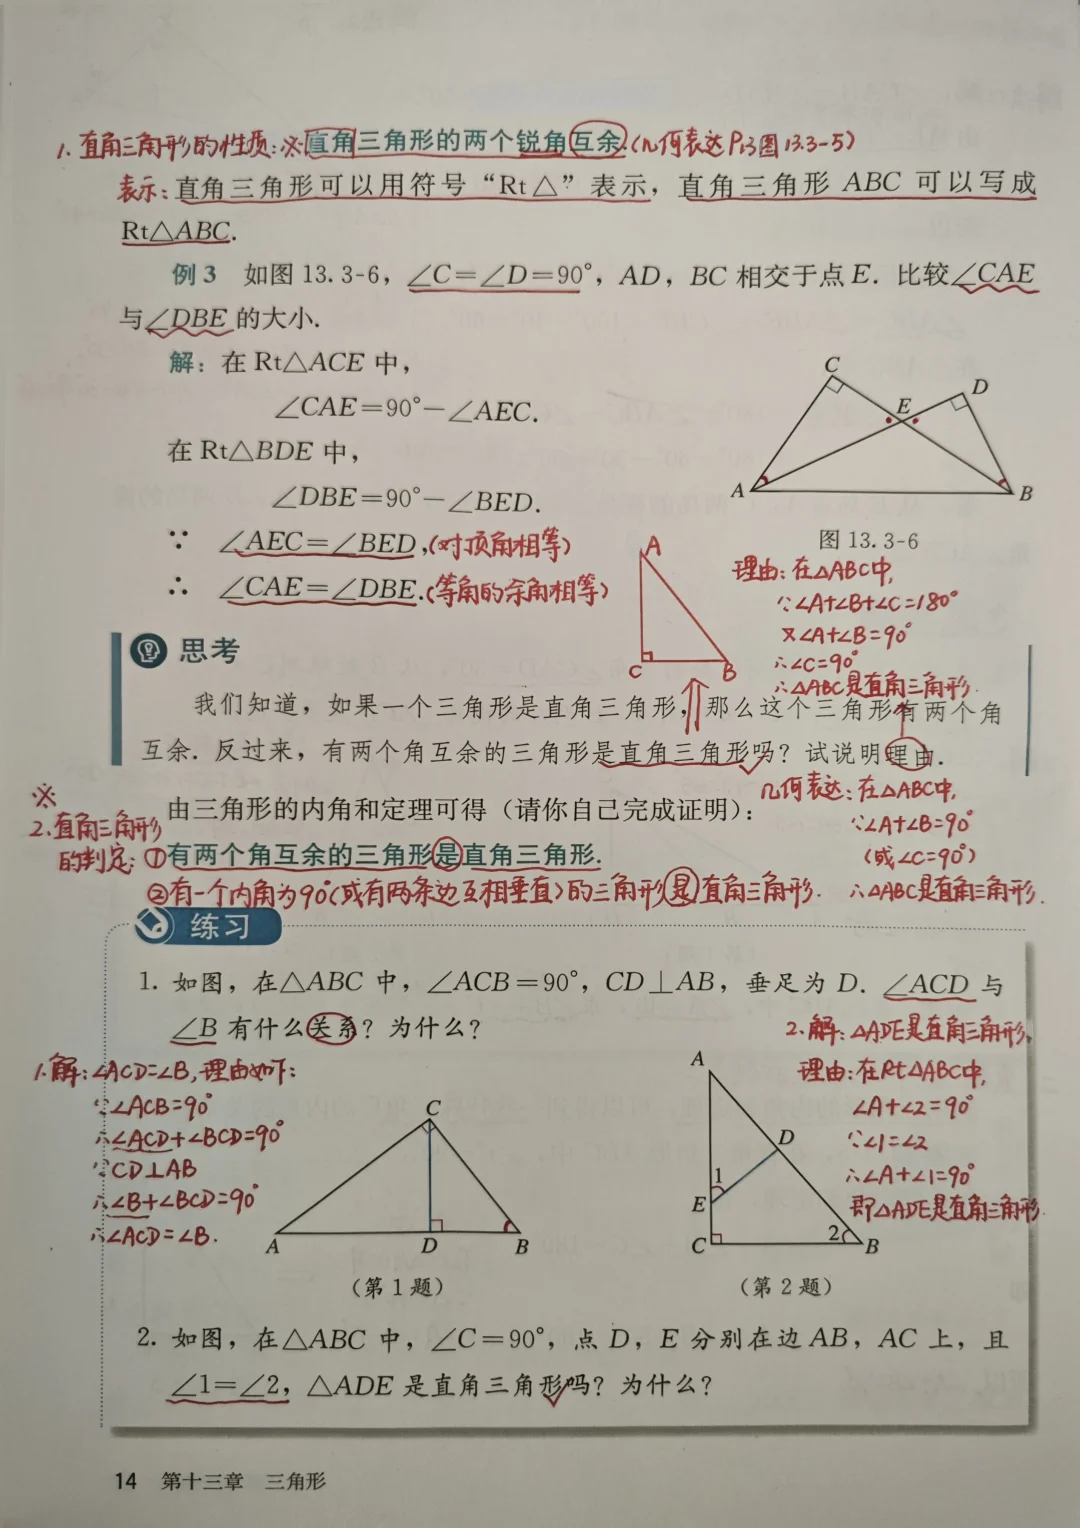 1. 直角三角形的性质:※直角三角形的两个锐角互余.(几何表达P13图13.3-5)
表示:直角三角形可以用符号“Rt△”表示，直角三角形 ABC 可以写成
Rt△ABC.
例 3 如图 13.3-6，∠C＝∠D＝90°，AD，BC 相交于点 E. 比较∠CAE
与∠DBE 的大小.
解：在 Rt△ACE 中，
∠CAE＝90°－∠AEC.
在 Rt△BDE 中，
∠DBE＝90°－∠BED.
∵ ∠AEC＝∠BED,(对顶角相等)
∴ ∠CAE＝∠DBE.(等角的余角相等)
C
D
E
A
B
图 13.3-6
A
C
B
理由:在△ABC中,
∵∠A+∠B+∠C=180°
又∠A+∠B=90°
∴∠C=90°
∴△ABC是直角三角形.
思考
我们知道，如果一个三角形是直角三角形，那么这个三角形有两个角
互余. 反过来，有两个角互余的三角形是直角三角形吗？试说明理由.
由三角形的内角和定理可得（请你自己完成证明）：
几何表达:在△ABC中,
∵∠A+∠B=90°
(或∠C=90°)
∴△ABC是直角三角形.
※
2.直角三角形
的判定:①有两个角互余的三角形是直角三角形.
②有一个内角为90°(或有两条边互相垂直)的三角形是直角三角形.
练习
1. 如图，在△ABC 中，∠ACB＝90°，CD⊥AB，垂足为 D. ∠ACD 与
∠B 有什么关系？为什么？
1.解:∠ACD=∠B,理由如下:
∵∠ACB=90°
∴∠ACD+∠BCD=90°
∵CD⊥AB
∴∠B+∠BCD=90°
∴∠ACD=∠B.
C
A
D
B
（第 1 题）
2.解:△ADE是直角三角形,
理由:在Rt△ABC中,
∠A+∠2=90°
∵∠1=∠2
∴∠A+∠1=90°
即△ADE是直角三角形.
A
D
1
E
C
2
B
（第 2 题）
2. 如图，在△ABC 中，∠C＝90°，点 D，E 分别在边 AB，AC 上，且
∠1＝∠2，△ADE 是直角三角形吗？为什么？
14 第十三章 三角形